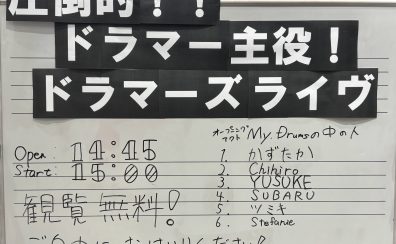 圧倒的！！
ドラマー主役！
ドラマーズライヴ
Open: 14:45
Start: 15:00
観覧無料！
オープニングアクト My Drumsの中の人
1. かずたか
2. Chihiro
3. YUSUKE
4. SUBARU
5. ツミキ
6. Stefanie